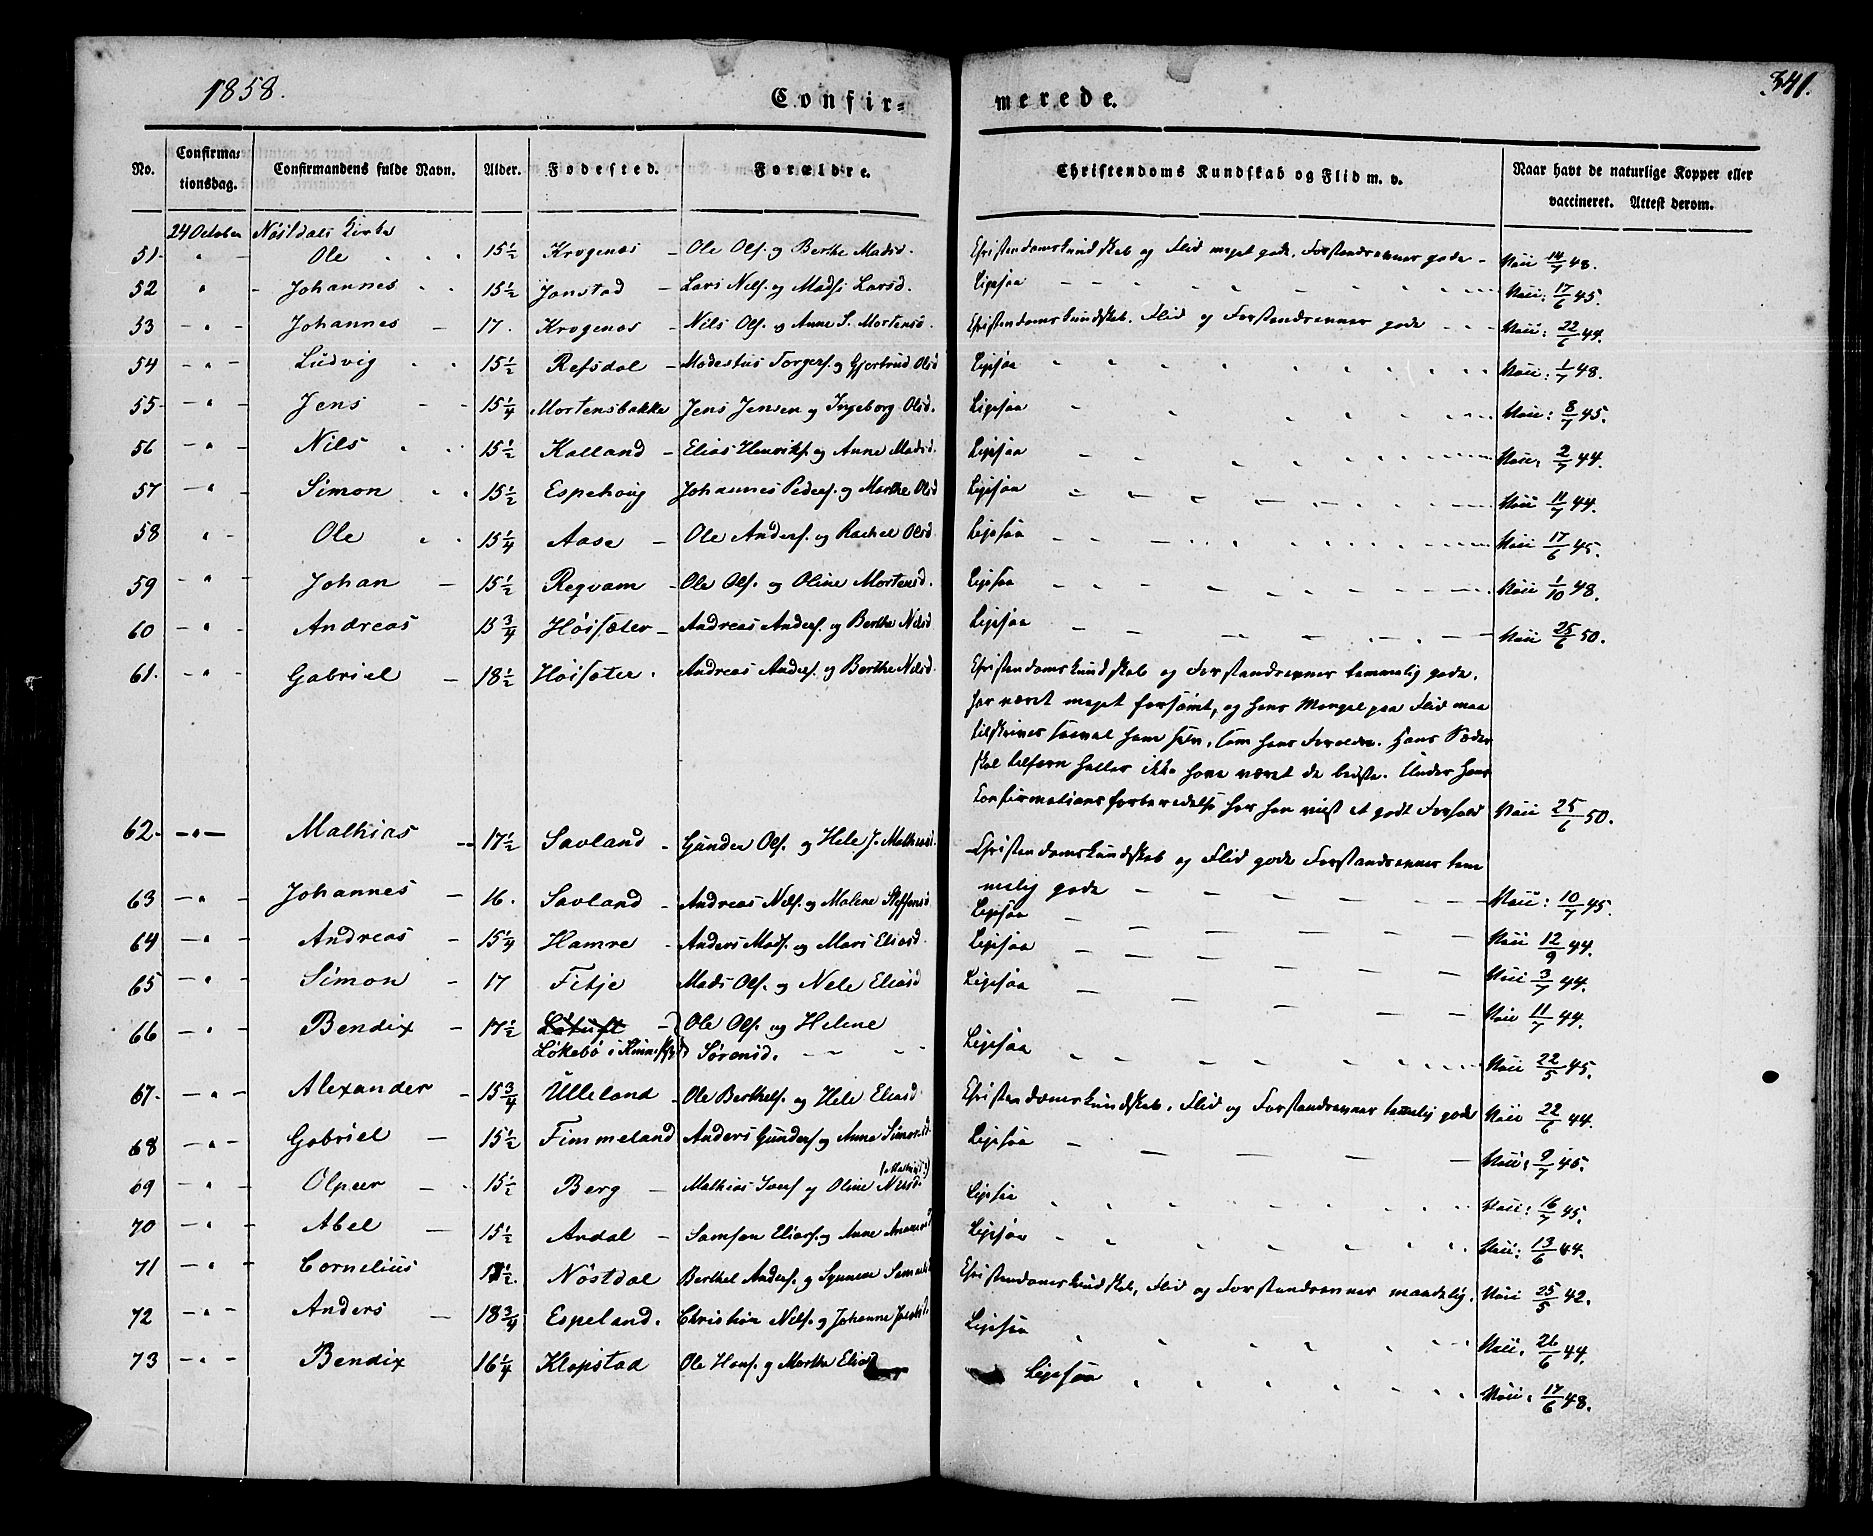 1858.
Confir-
merede.
341.
No.
Confirma-
tionsdag.
Confirmandens fulde Navn.
Alder.
Fødested.
Forældre.
Christendoms Kundskab og Flid m. v.
Naar havt de naturlige Kopper eller
vaccineret. Attest derom.
24 October Nöstdals Kirke
51. " - Ole 15½ Krogenæs - Ole Ols. og Berthe Madsd. Christendomskundskab og Flid meget gode. Forstandsevner gode - Vacc 14/7 48.
52 " - Johannes 15½ Jonstad - Lars Nils. og Madsi Larsd. Ligesaa - Vacc: 17/6 45.
53 - " - Johannes - 17. Krogenæs - Nils Ols. og Anne S. Mortensd. Christendomskundskab. Flid og Forstandsevner gode - Vacc: 22/6 44.
54 - " - Ludvig 15½ Refsdal - Modestus Torgers. og Gjertrud Olsd Ligesaa Vacc: 1/7 48.
55 - " - Jens - 15¼ Mortensbakke Jens Jensen og Ingeborg Olsd. Ligesaa Vacc: 8/7 45.
56 - " - Nils 15½ Kalland - Elias Henriks. og Anne Madsd. Ligesaa Vacc: 2/7 44.
57 - " - Simon 15½ Espehoug Johannes Peders. og Marthe Olsd Ligesaa Vacc 11/7 44.
58 " - Ole 15¼ Aase - Ole Anders. og Rachel Olsd. Ligesaa Vacc 17/6 45.
59 - " - Johan - 15½ Regvam - Ole Ols. og Oline Mortensd. Ligesaa Vacc 1/10 48.
60 - " - Andreas 15¾ Höisæter - Andreas Anders. og Berthe Nilsd Ligesaa Vacc 25/6 50.
61. - " - Gabriel - 18½ Höisæter. Andreas Anders. og Berthe Nilsd. Christendomskundskab og Forstandsevner temmelig gode.
har været meget forsömt, og hans Mangel paa Flid maa
tilskrives saavel ham selv, som hans Forældre. Hans Sæder
skal tilforn heller ikke have været de bedste. Under hans
Confirmationsforberedelse har han viist et godt Forhold Vacc 25/6 50.
62. - " - Mathias - 17½ Savland - Gunder Ols. og Hele J. Mathiasd. Christendomskundskab og Flid gode Forstandsevner tem
melig gode - Vacc: 10/7 45.
63 - " - Johannes - 16. Savland - Andreas Nils. og Malene Steffensd. Ligesaa - Vacc 12/9 44.
64 - " - Andreas - 15¼ Hamre - Anders Mads. og Mari Eliasd. Ligesaa - Vacc 3/7 44.
65 - " - Simon - 17 Fitje Mads Ols. og Nele Eliasd Ligesaa - Vacc 11/7 44.
66 - " - Bendix - 17½ Ole Ols. og Helene
Lökebö i Sörensd. Ligesaa Vacc 22/5 45.
67. - " - Alexander - 15¾ Ulleland - Ole Berthels. og Hele Eliasd. Christendomskundskab, Flid og Forstandsevner temelig gode Vacc 22/6 44.
68 - " - Gabriel - 15½ Timmeland Anders Gunders. og Anne Simonsd. Ligesaa - Vacc: 9/7 45.
(Mathiasd.)
69 - " - Olpeer - 15½ Berg - Mathias og Oline Nilsd. Ligesaa Vacc: 16/7 45.
70 - " - Abel - 15½ Andal - Samson Elias. og Anne Ligesaa Vacc: 13/6 44.
71 - " - Cornelius Nöstdal Berthel Anders. og Synneve Christendomskundskab, Flid og Forstandsevner maadelig. Vacc 25/5 42.
72 - " - Anders - 18¾ Espeland. Christian Nils. og Johanne Ligesaa Vacc. 26/6 44.
73 - " - Bendix 16¼ Klopstad Ole Hans. og Marthe Eliasd Ligesaa Vacc. 17/6 48.